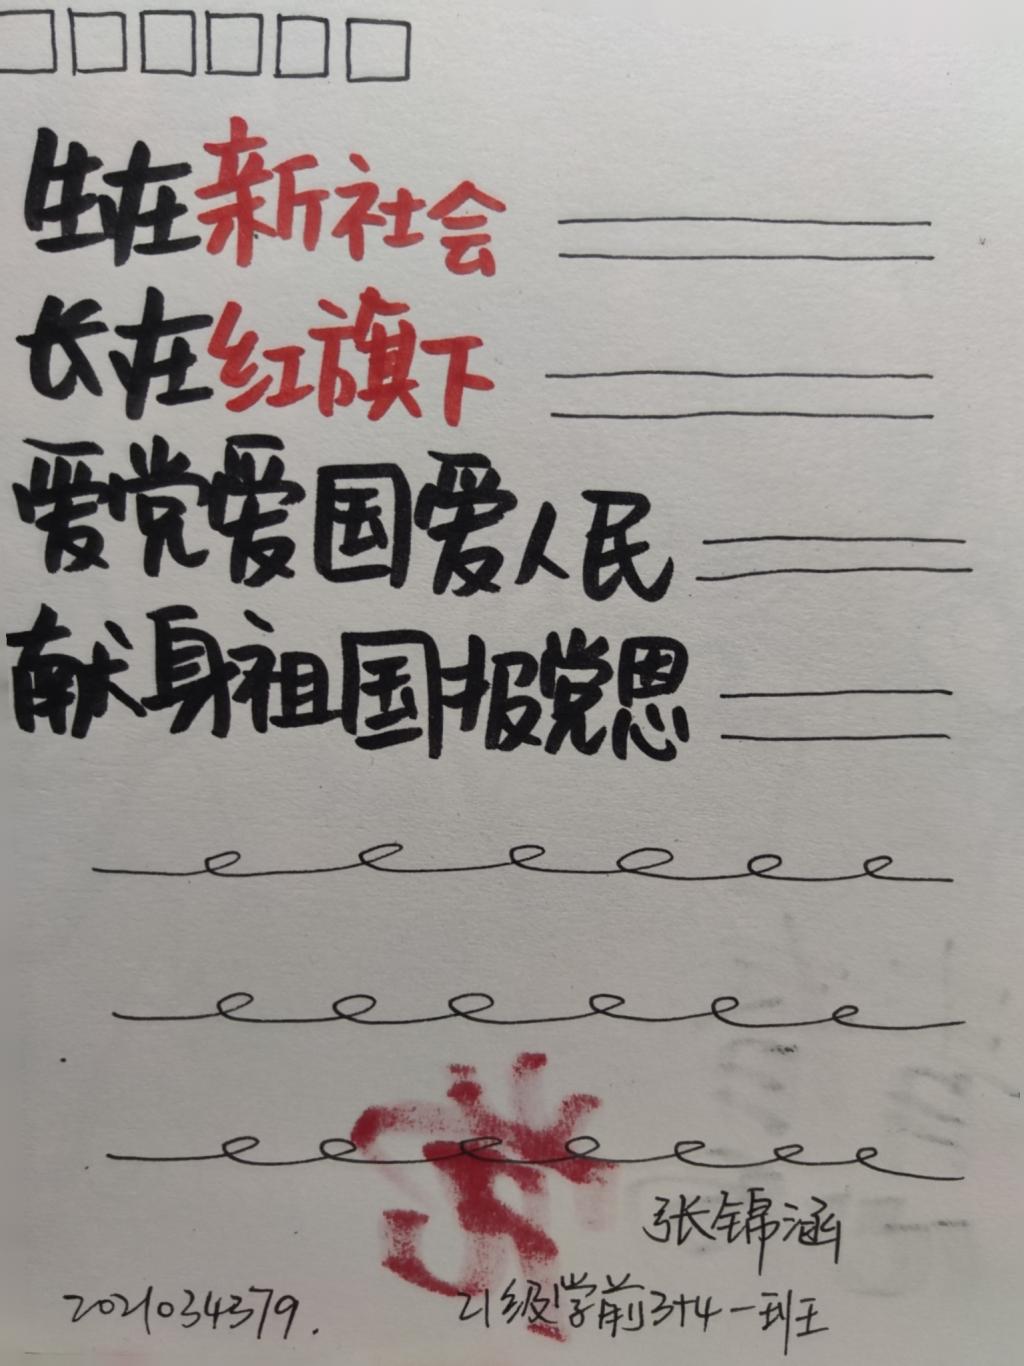 生在新社会
长在红旗下
爱党爱国爱人民
献身祖国报党恩
张锦涵
2021034379.
21级学前3+4一班